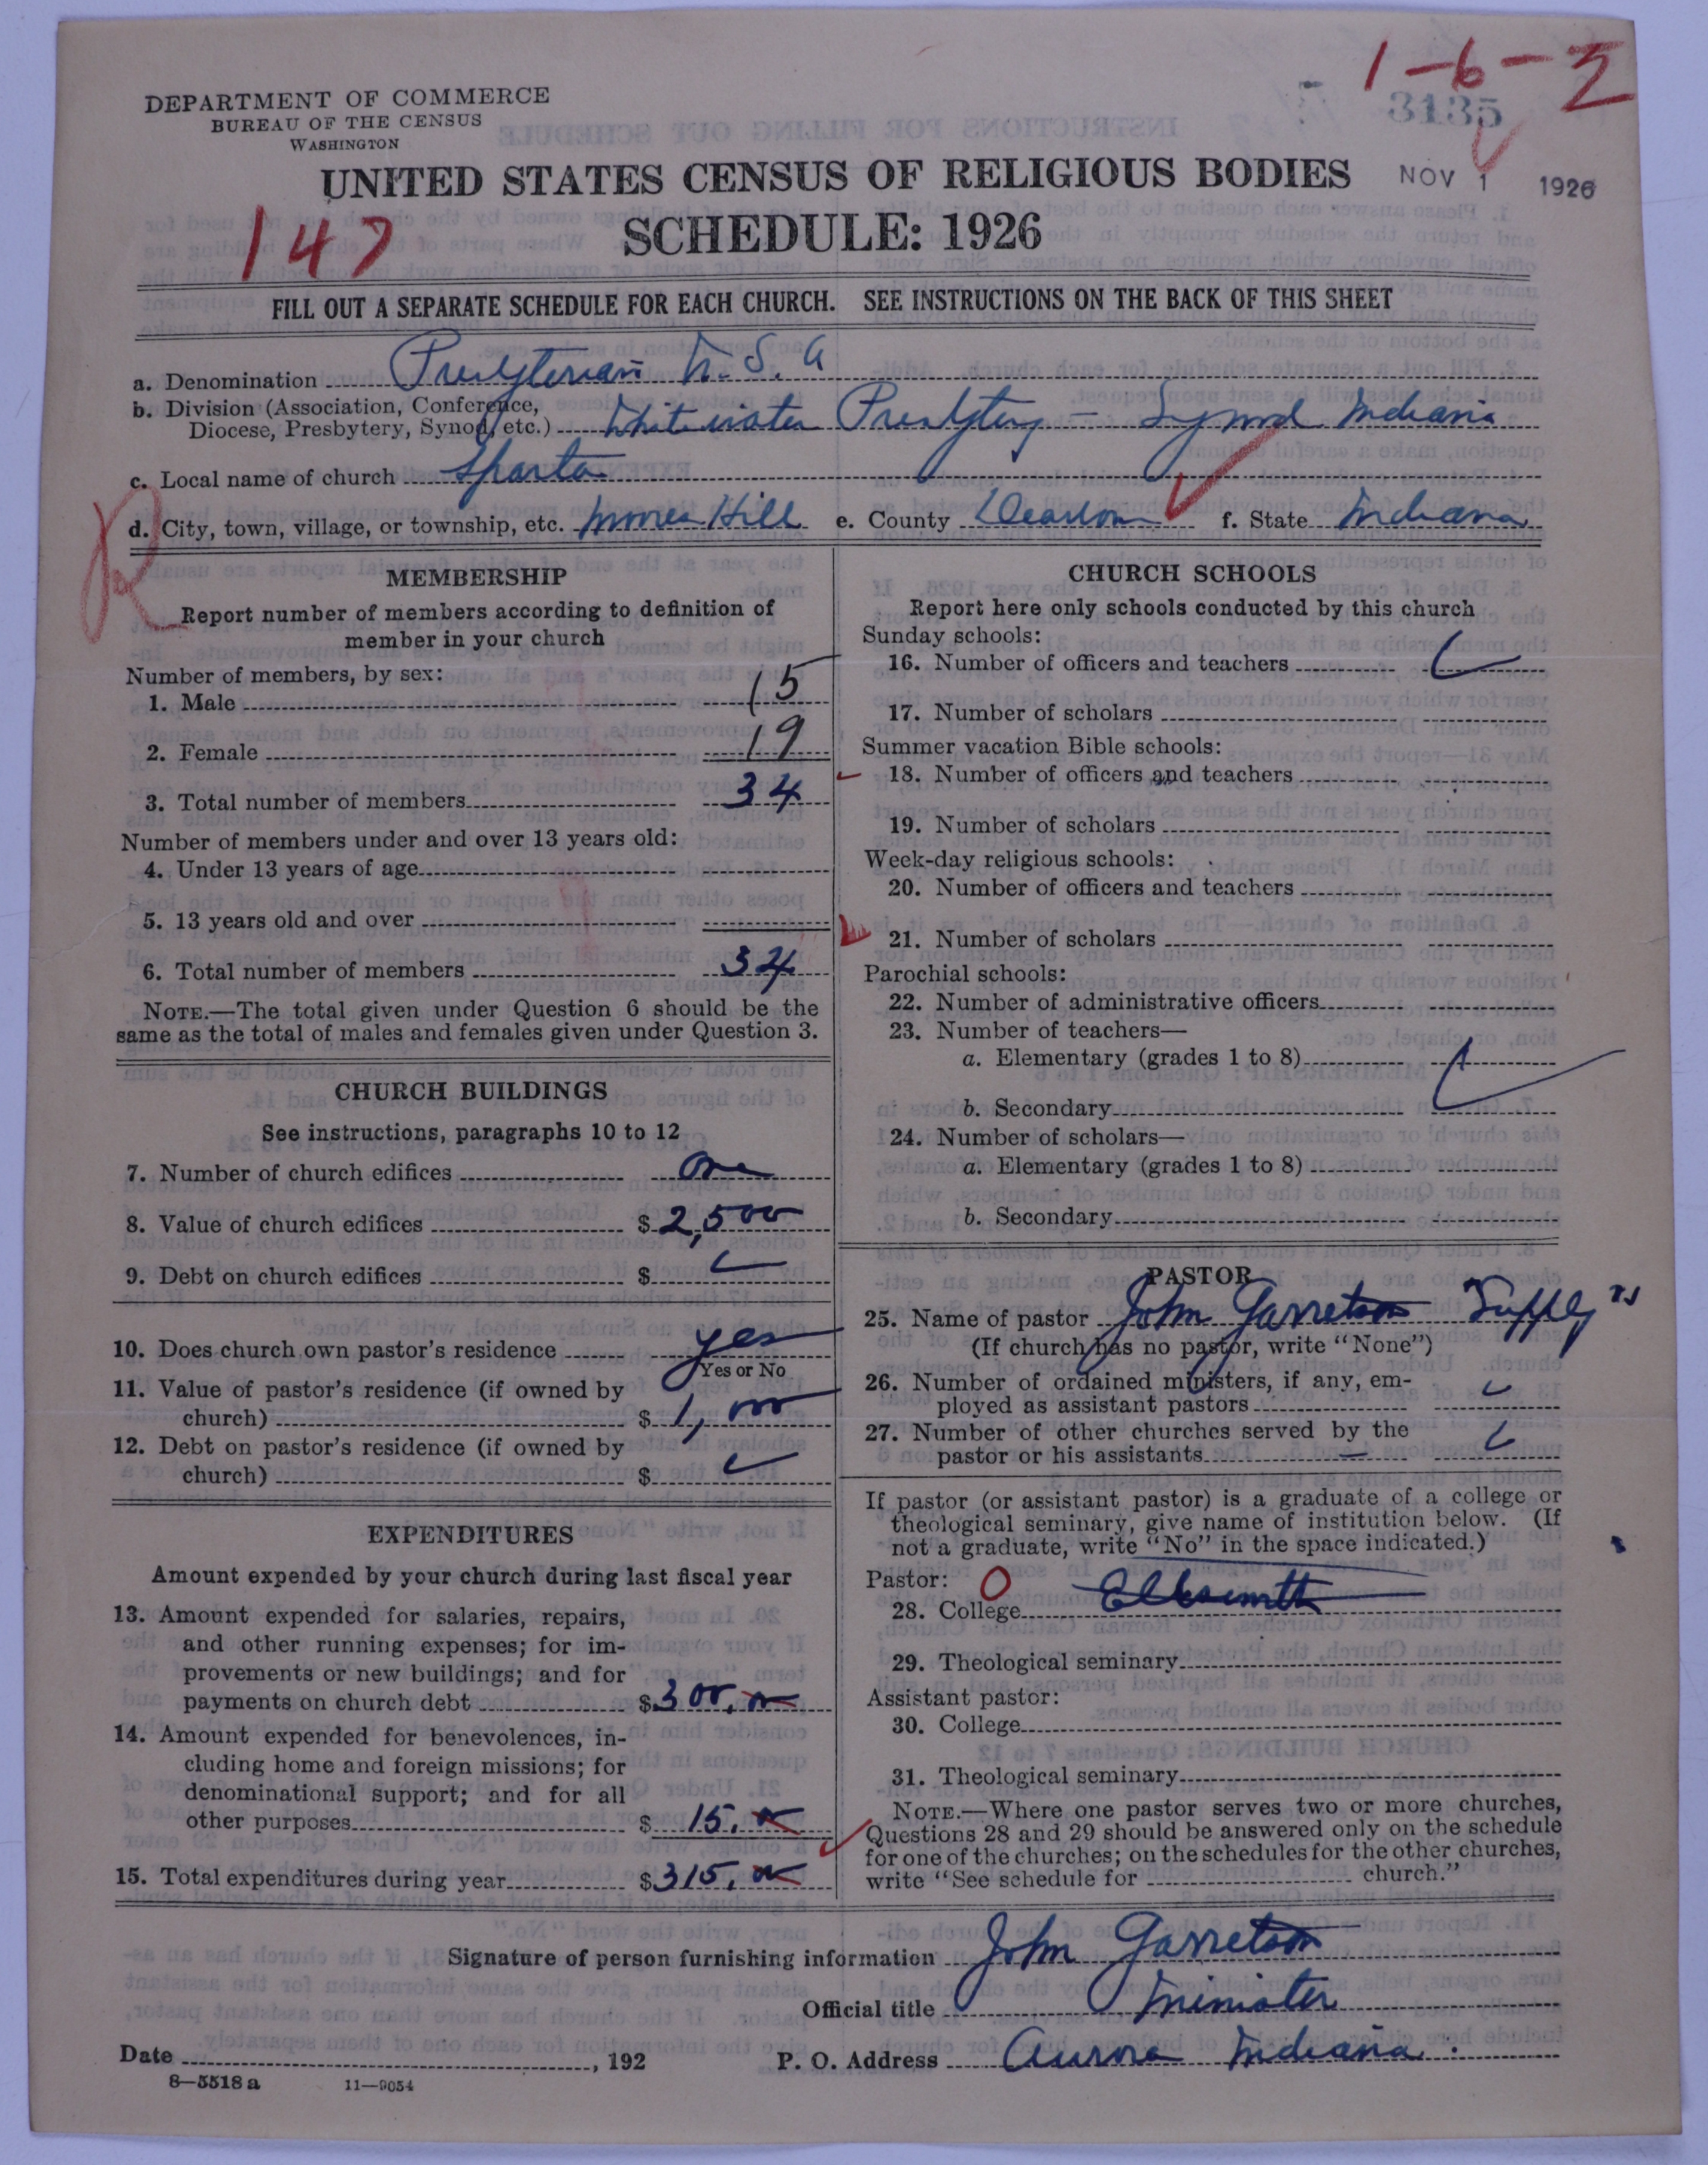 1-6-2
3135
DEPARTMENT OF COMMERCE
BUREAU OF THE CENSUS
WASHINGTON
UNITED STATES CENSUS OF RELIGIOUS BODIES
NOV 1 1926
147
SCHEDULE: 1926
FILL OUT A SEPARATE SCHEDULE FOR EACH CHURCH. SEE INSTRUCTIONS ON THE BACK OF THIS SHEET
a. Denomination Presbyterian U. S. A
b. Division (Association, Conference,
Diocese, Presbytery, Synod, etc.) Whitewater Presbytery - Synod Indiana
c. Local name of church Sparta
d. City, town, village, or township, etc. Moores Hill e. County Dearborn f. State Indiana
R
MEMBERSHIP
Report number of members according to definition of
member in your church
Number of members, by sex:
1. Male 15
2. Female 19
3. Total number of members 34
Number of members under and over 13 years old:
4. Under 13 years of age
5. 13 years old and over
6. Total number of members 34
NOTE.—The total given under Question 6 should be the
same as the total of males and females given under Question 3.
CHURCH BUILDINGS
See instructions, paragraphs 10 to 12
7. Number of church edifices One
8. Value of church edifices $2,500
9. Debt on church edifices $
10. Does church own pastor's residence yes
Yes or No
11. Value of pastor's residence (if owned by
church) $1,000
12. Debt on pastor's residence (if owned by
church) $
EXPENDITURES
Amount expended by your church during last fiscal year
13. Amount expended for salaries, repairs,
and other running expenses; for im-
provements or new buildings; and for
payments on church debt $300.00
14. Amount expended for benevolences, in-
cluding home and foreign missions; for
denominational support; and for all
other purposes $15.00
15. Total expenditures during year $315.00
CHURCH SCHOOLS
Report here only schools conducted by this church
Sunday schools:
16. Number of officers and teachers
17. Number of scholars
Summer vacation Bible schools:
18. Number of officers and teachers
19. Number of scholars
Week-day religious schools:
20. Number of officers and teachers
21. Number of scholars
Parochial schools:
22. Number of administrative officers
23. Number of teachers—
a. Elementary (grades 1 to 8)
b. Secondary
24. Number of scholars—
a. Elementary (grades 1 to 8)
b. Secondary
PASTOR
25. Name of pastor John Garretson "Supply"
(If church has no pastor, write "None")
26. Number of ordained ministers, if any, em-
ployed as assistant pastors
27. Number of other churches served by the
pastor or his assistants
If pastor (or assistant pastor) is a graduate of a college or
theological seminary, give name of institution below. (If
not a graduate, write "No" in the space indicated.)
Pastor: O
28. College
29. Theological seminary
Assistant pastor:
30. College
31. Theological seminary
NOTE.—Where one pastor serves two or more churches,
Questions 28 and 29 should be answered only on the schedule
for one of the churches; on the schedules for the other churches,
write "See schedule for church."
Signature of person furnishing information John Garretson
Official title Minister
Date , 192 P. O. Address Aurora Indiana.
8—5518 a 11—9054